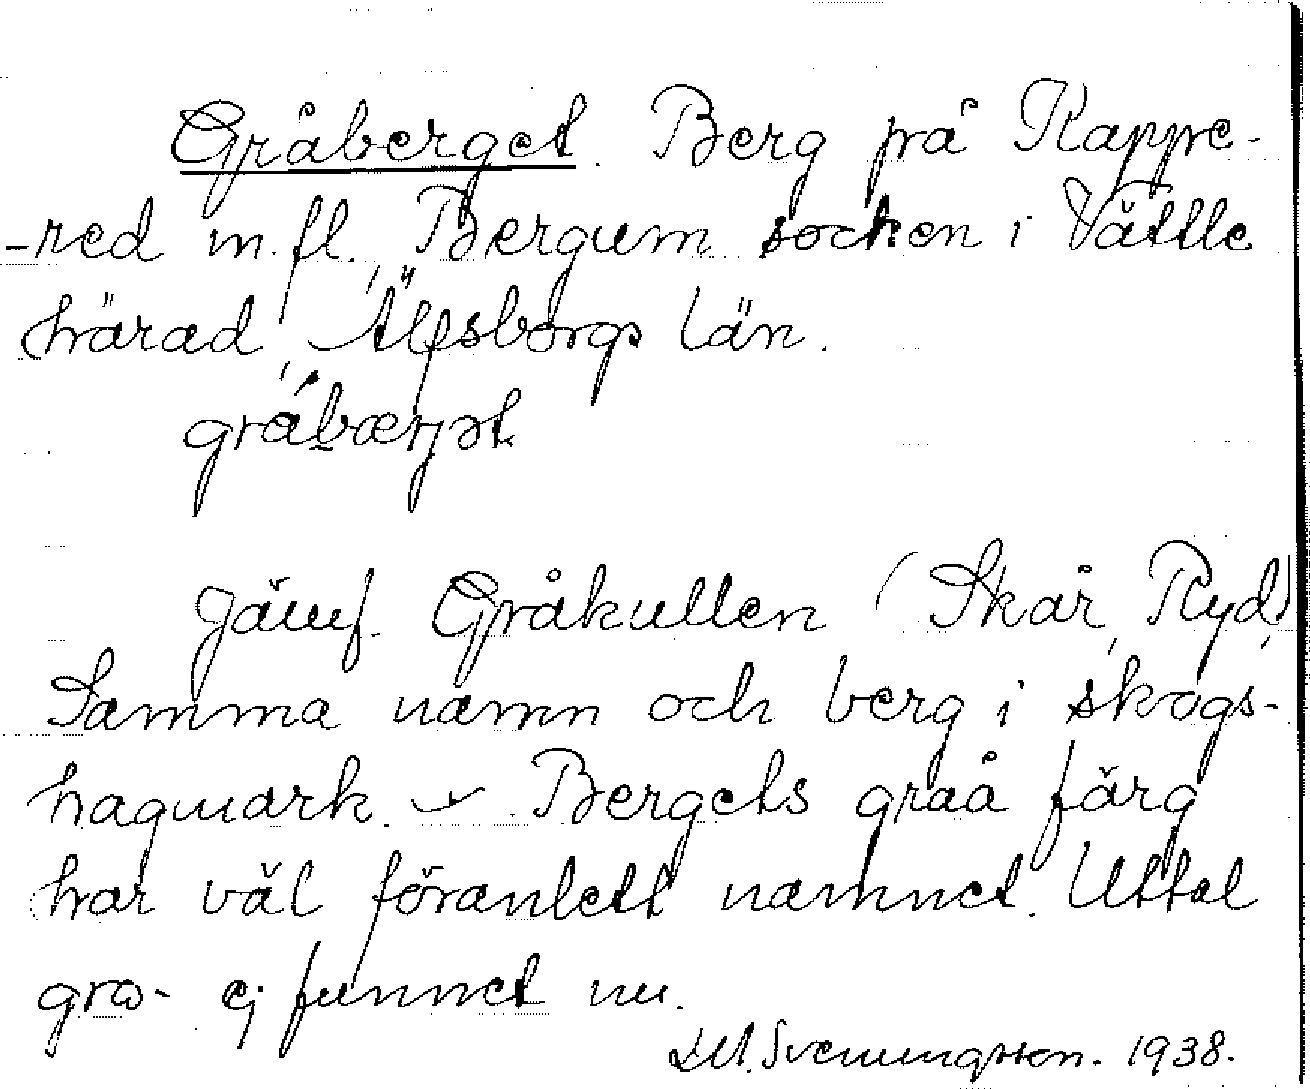 Gråberget. Berg på Rappe-
-red m.fl., Bergum socken i Vättle
härad, Älfsborgs län.
gråbærjət
Jämf. Gråkullen (Skår, Ryd),
Samma namn och berg i skogs-
hagmark. Bergets gråå färg
har väl föranlett namnet. Uttal
gro- ej funnet nu.
Svenungsson. 1938.